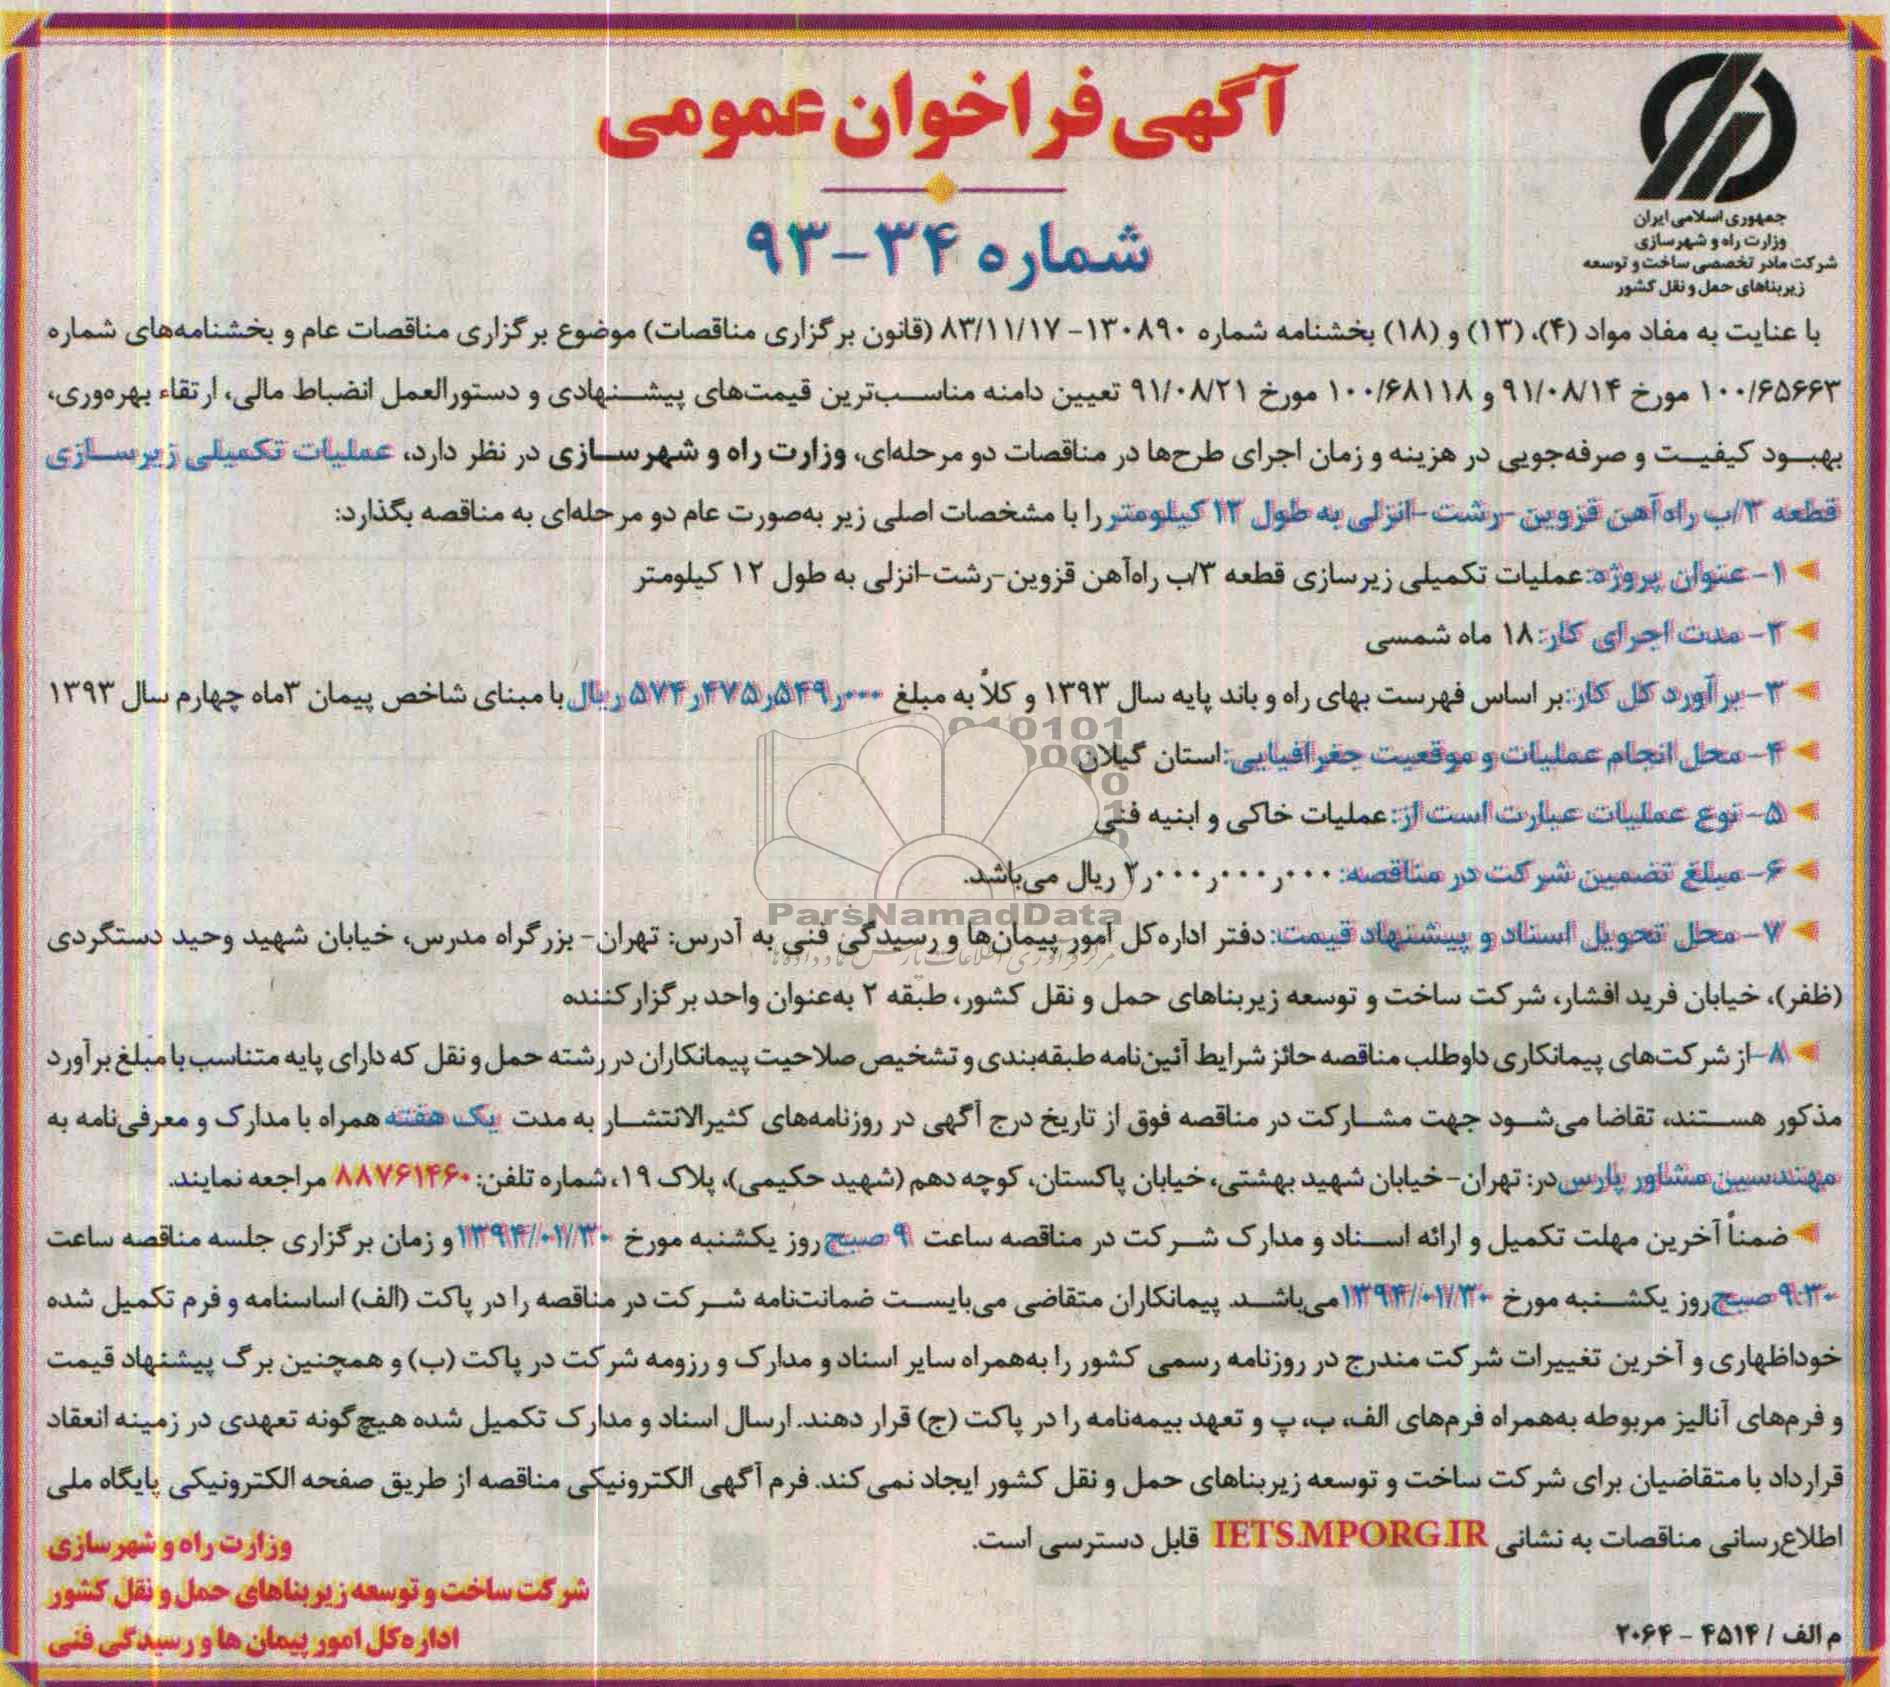 جمهوری اسلامی ایران
وزارت راه و شهرسازی
شرکت مادر تخصصی ساخت و توسعه
زیربناهای حمل و نقل کشور
آگهی فراخوان عمومی
شماره ۳۴-۹۳
با عنایت به مفاد مواد (۴)، (۱۳) و (۱۸) بخشنامه شماره ۱۳۰۸۹۰- ۸۳/۱۱/۱۷ (قانون برگزاری مناقصات) موضوع برگزاری مناقصات عام و بخشنامه‌های شماره
۱۰۰/۶۵۶۶۳ مورخ ۹۱/۰۸/۱۴ و ۱۰۰/۶۸۱۱۸ مورخ ۹۱/۰۸/۲۱ تعیین دامنه مناسب‌ترین قیمت‌های پیشنهادی و دستورالعمل انضباط مالی، ارتقاء بهره‌وری،
بهبود کیفیت و صرفه‌جویی در هزینه و زمان اجرای طرح‌ها در مناقصات دو مرحله‌ای، وزارت راه و شهرسازی در نظر دارد، عملیات تکمیلی زیرسازی
قطعه ۳/ب راه‌آهن قزوین-رشت-انزلی به طول ۱۲ کیلومتر را با مشخصات اصلی زیر به‌صورت عام دو مرحله‌ای به مناقصه بگذارد:
۱- عنوان پروژه: عملیات تکمیلی زیرسازی قطعه ۳/ب راه‌آهن قزوین-رشت-انزلی به طول ۱۲ کیلومتر
۲- مدت اجرای کار: ۱۸ ماه شمسی
۳- برآورد کل کار: بر اساس فهرست بهای راه و باند پایه سال ۱۳۹۳ و کلاً به مبلغ ۵۷۴ر۴۷۵ر۵۴۹ر۰۰۰ ریال با مبنای شاخص پیمان ۳ماه چهارم سال ۱۳۹۳
۴- محل انجام عملیات و موقعیت جغرافیایی: استان گیلان
۵- نوع عملیات عبارت است از: عملیات خاکی و ابنیه فنی
۶- مبلغ تضمین شرکت در مناقصه: ۲ر۰۰۰ر۰۰۰ر۰۰۰ ریال می‌باشد.
۷- محل تحویل اسناد و پیشنهاد قیمت: دفتر اداره‌کل امور پیمان‌ها و رسیدگی فنی به آدرس: تهران- بزرگراه مدرس، خیابان شهید وحید دستگردی
(ظفر)، خیابان فرید افشار، شرکت ساخت و توسعه زیربناهای حمل و نقل کشور، طبقه ۲ به‌عنوان واحد برگزارکننده
۸-از شرکت‌های پیمانکاری داوطلب مناقصه حائز شرایط آئین‌نامه طبقه‌بندی و تشخیص صلاحیت پیمانکاران در رشته حمل و نقل که دارای پایه متناسب با مبلغ برآورد
مذکور هستند، تقاضا می‌شود جهت مشارکت در مناقصه فوق از تاریخ درج آگهی در روزنامه‌های کثیرالانتشار به مدت یک هفته همراه با مدارک و معرفی‌نامه به
مهندسین مشاور پارس در: تهران- خیابان شهید بهشتی، خیابان پاکستان، کوچه دهم (شهید حکیمی)، پلاک ۱۹، شماره تلفن: ۸۸۷۶۱۴۶۰ مراجعه نمایند.
ضمناً آخرین مهلت تکمیل و ارائه اسناد و مدارک شرکت در مناقصه ساعت ۹ صبح روز یکشنبه مورخ ۱۳۹۴/۰۲/۳۰ و زمان برگزاری جلسه مناقصه ساعت
۹:۳۰ صبح روز یکشنبه مورخ ۱۳۹۴/۰۲/۳۰ می‌باشد. پیمانکاران متقاضی می‌بایست ضمانت‌نامه شرکت در مناقصه را در پاکت (الف) اساسنامه و فرم تکمیل شده
خوداظهاری و آخرین تغییرات شرکت مندرج در روزنامه رسمی کشور را به‌همراه سایر اسناد و مدارک و رزومه شرکت در پاکت (ب) و همچنین برگ پیشنهاد قیمت
و فرم‌های آنالیز مربوطه به‌همراه فرم‌های الف، ب، پ و تعهد بیمه‌نامه را در پاکت (ج) قرار دهند. ارسال اسناد و مدارک تکمیل شده هیچ‌گونه تعهدی در زمینه انعقاد
قرارداد با متقاضیان برای شرکت ساخت و توسعه زیربناهای حمل و نقل کشور ایجاد نمی‌کند. فرم آگهی الکترونیکی مناقصه از طریق صفحه الکترونیکی پایگاه ملی
اطلاع‌رسانی مناقصات به نشانی IETS.MPORG.IR قابل دسترسی است.
وزارت راه و شهرسازی
شرکت ساخت و توسعه زیربناهای حمل و نقل کشور
اداره‌کل امور پیمان ها و رسیدگی فنی
م الف / ۴۵۱۴ - ۲۰۶۴
ParsNamadData